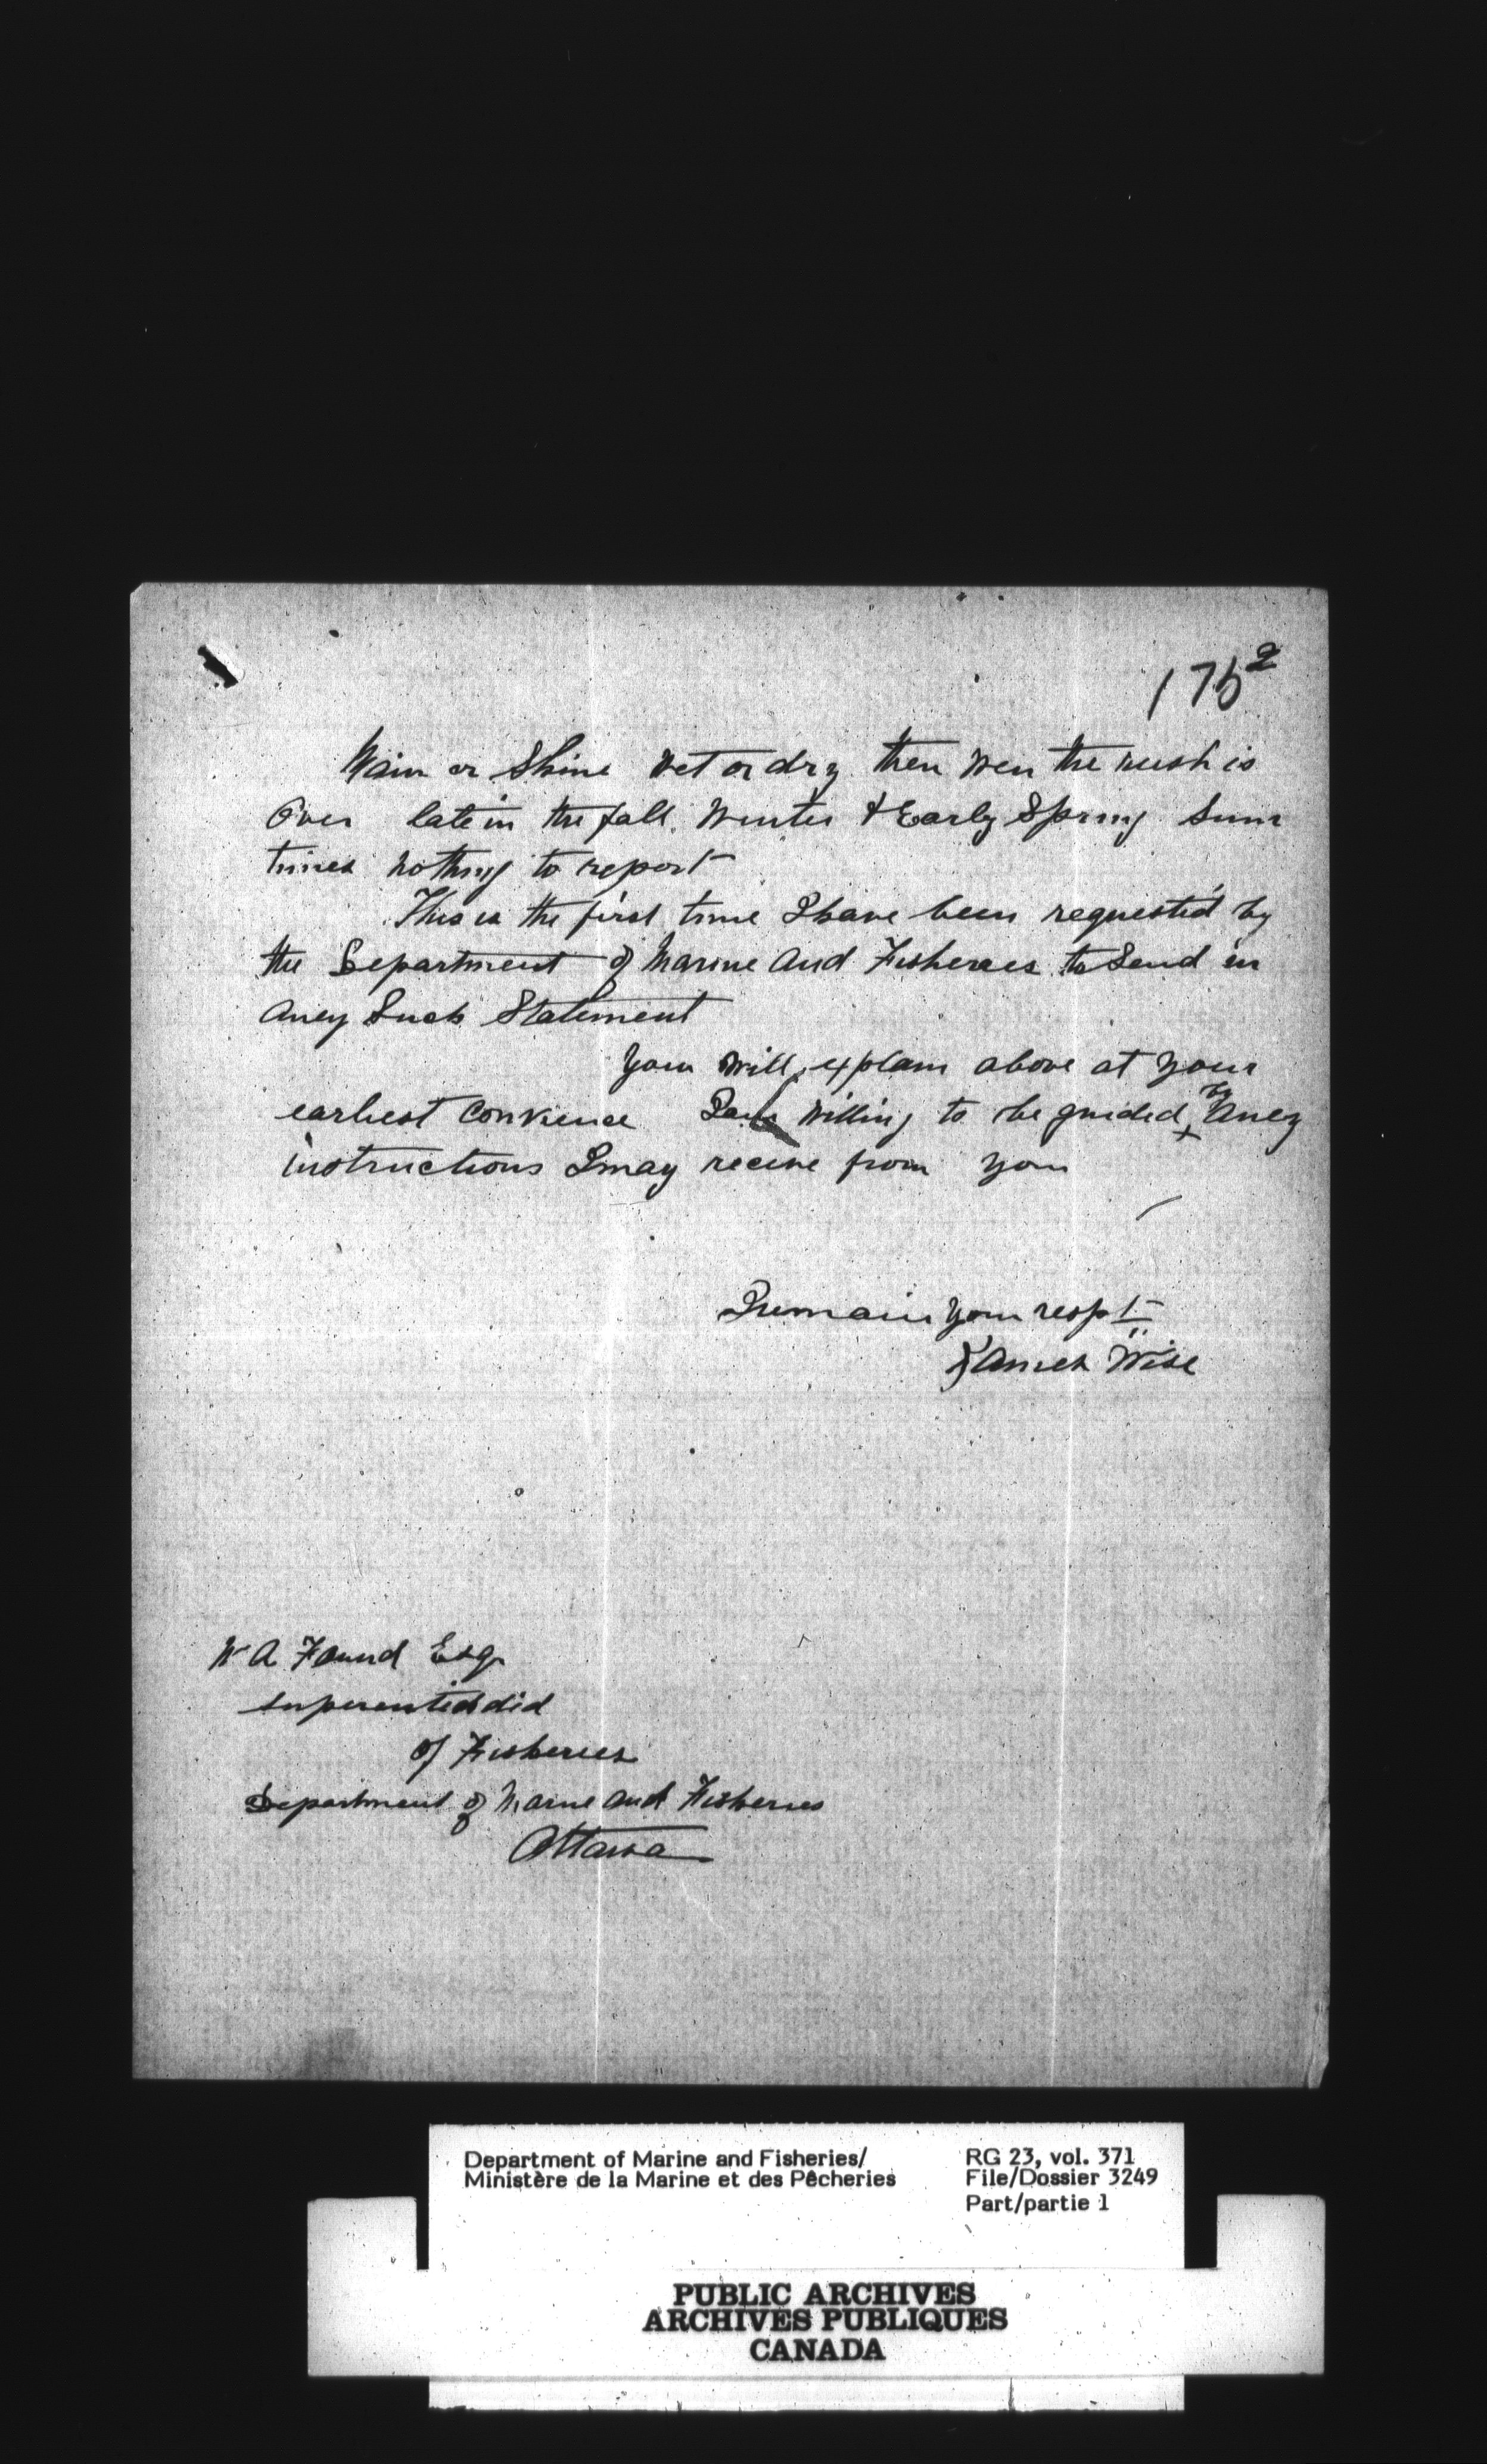 175 2
Rain or Shine Wet or dry then Wen the rush is
Over late in the fall. Winter & Early Spring Sum
times nothing to report
This is the first time I have been requested by
the Department of Marine and Fisheries to Send in
Aney Such Statement
You will explain above at your
earliest Convience I am willing to be guided by Aney
instructions I may receive from you
I remain your respt
James Wise
W A Found Esq.
of Fisheries
Department of Marine and Fisheries
Ottawa
Department of Marine and Fisheries/ RG 23, vol. 371
Ministère de la Marine et des Pêcheries File/Dossier 3249
Part/partie 1
PUBLIC ARCHIVES
ARCHIVES PUBLIQUES
CANADA